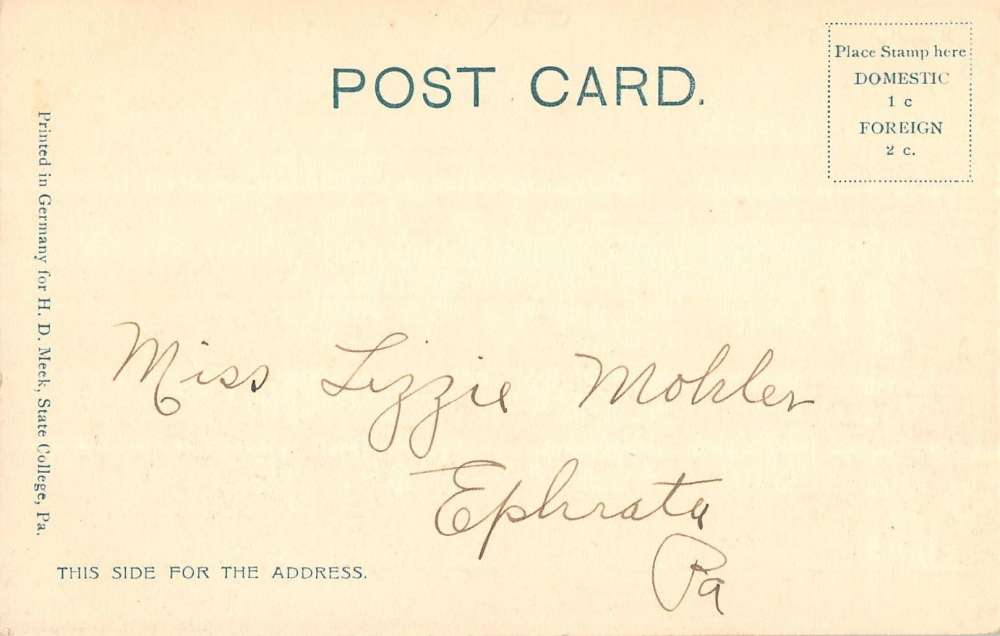 POST CARD.
Place Stamp here
DOMESTIC
1 c
FOREIGN
2 c.
Printed in Germany for H. D. Meek, State College, Pa.
Miss Lizzie Mohler
Ephrata
Pa
THIS SIDE FOR THE ADDRESS.